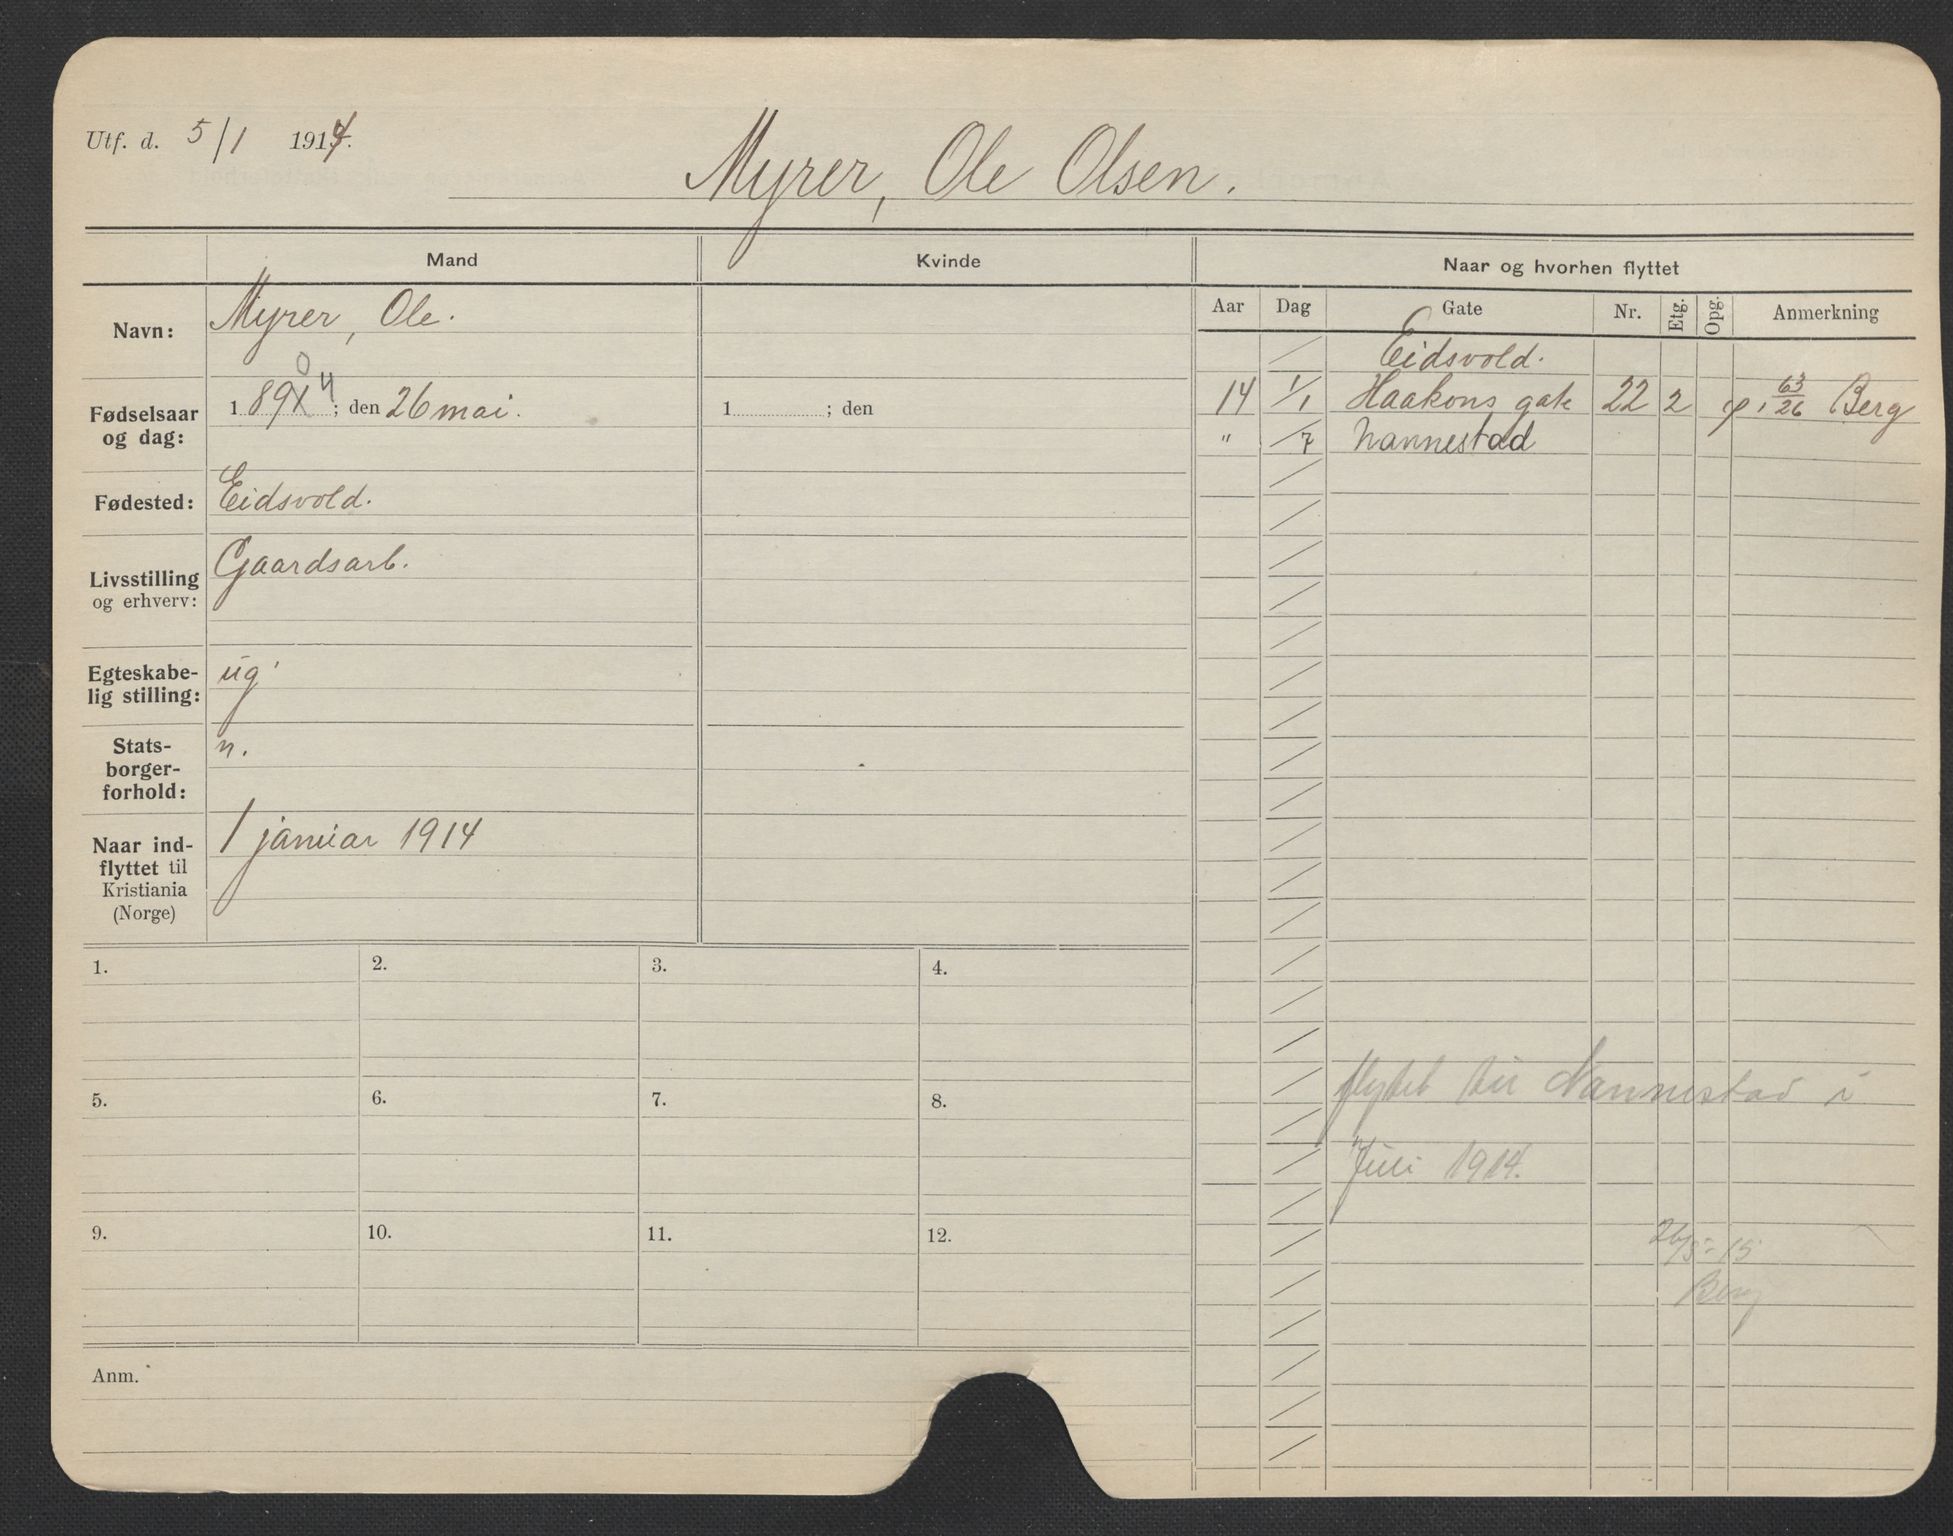 Utf. d. 5/1 1914.
Myrer, Ole Olsen.
Mand
Kvinde
Naar og hvorhen flyttet
Navn: Myrer, Ole.
0 4
Fødselsaar og dag: 1 89 ; den 26 mai.
1 ; den
Fødested: Eidsvold.
Livsstilling og erhverv: Gaardsarb.
Egteskabe-
lig stilling: ug
Stats-
borger-
forhold: n.
Naar ind-
flyttet til
Kristiania
(Norge)
1 januar 1914
Aar Dag Gate Nr. Etg. Opg. Anmerkning
/ Eidsvold.
14 1/1 Haakons gate 22 2 63/26 Berg
" /7 Nannestad
flyttet til Nannestad i
Juli 1914.
26/5-15
Berg
1. 2. 3. 4.
5. 6. 7. 8.
9. 10. 11. 12.
Anm.